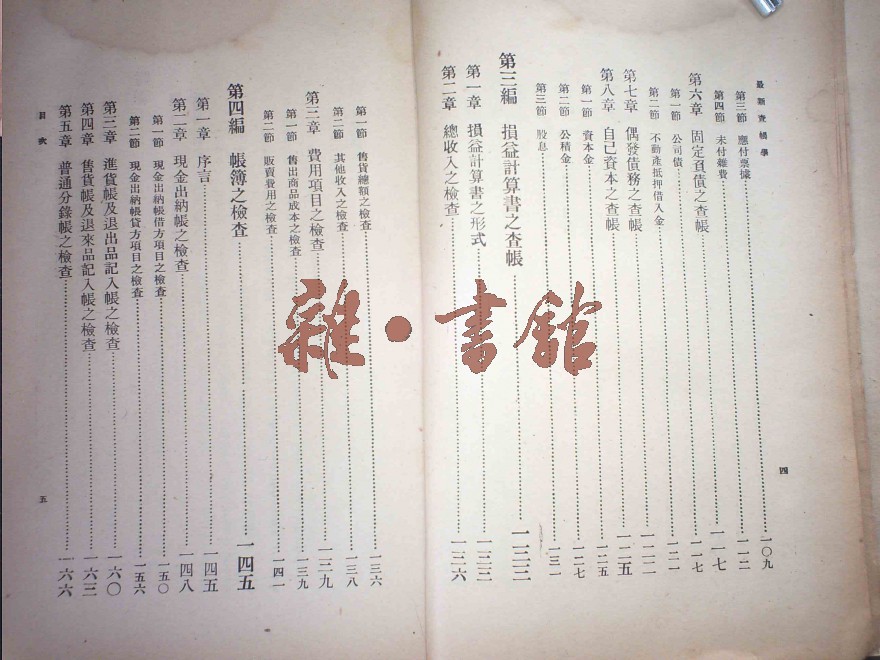 最新查帳學
四
第三節 應付票據……一〇九
第四節 未付雜費……一一二
第六章 固定負債之查帳……一一七
第一節 公司債……一一七
第二節 不動產抵押借入金……一二一
第七章 偶發債務之查帳……一二二
第八章 自己資本之查帳……一二五
第一節 資本金……一二五
第二節 公積金……一二七
第三節 股息……一三一
第三編 損益計算書之查帳……一三三
第一章 損益計算書之形式……一三三
第二章 總收入之檢查……一三六
第一節 售貨總額之檢查……一三六
第二節 其他收入之檢查……一三八
第三章 費用項目之檢查……一三九
第一節 售出商品成本之檢查……一三九
第二節 販賣費用之檢查……一四一
第四編 帳簿之檢查……一四五
第一章 序言……一四五
第二章 現金出納帳之檢查……一四八
第一節 現金出納帳借方項目之檢查……一五〇
第二節 現金出納帳貸方項目之檢查……一五六
第三章 進貨帳及退出品記入帳之檢查……一六〇
第四章 售貨帳及退來品記入帳之檢查……一六三
第五章 普通分錄帳之檢查……一六六
目次
五
雜·書館